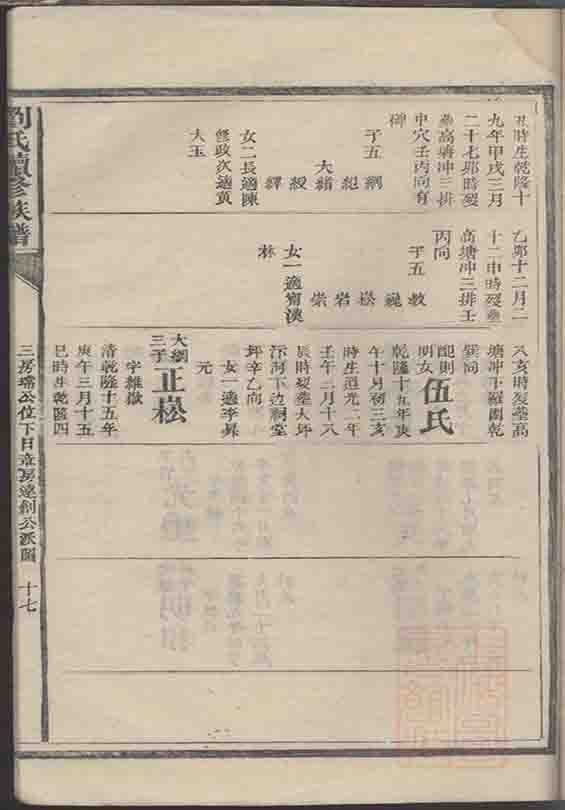 丑時生乾隆十
九年甲戌三月
二十七卯時歿
塟高塘冲三排
申穴壬丙向有
碑
子五 綱
紀
大緒
綬
繹
女二長適陳
啓政次適黃
大玉
乙卯十二月二
十二申時歿塟
高塘冲三排壬
丙向
子五 教
巍
崧
岩
崇
女一適甯漢
林
八亥時歿塟高
塘冲下羅圍乾
巽向
配則 伍氏
明女
乾隆十九年庚
午十月初三亥
時生道光二年
壬午二月十八
辰時歿塟大坪
汴河下边祠堂
坪辛乙向
女一適李昇
元
大綱
三子 正崧
字維嶽
清乾隆十五年
庚午三月十五
巳時生乾隆四
劉氏續修族譜
三房瑺公位下日章房達創公派圖 十七